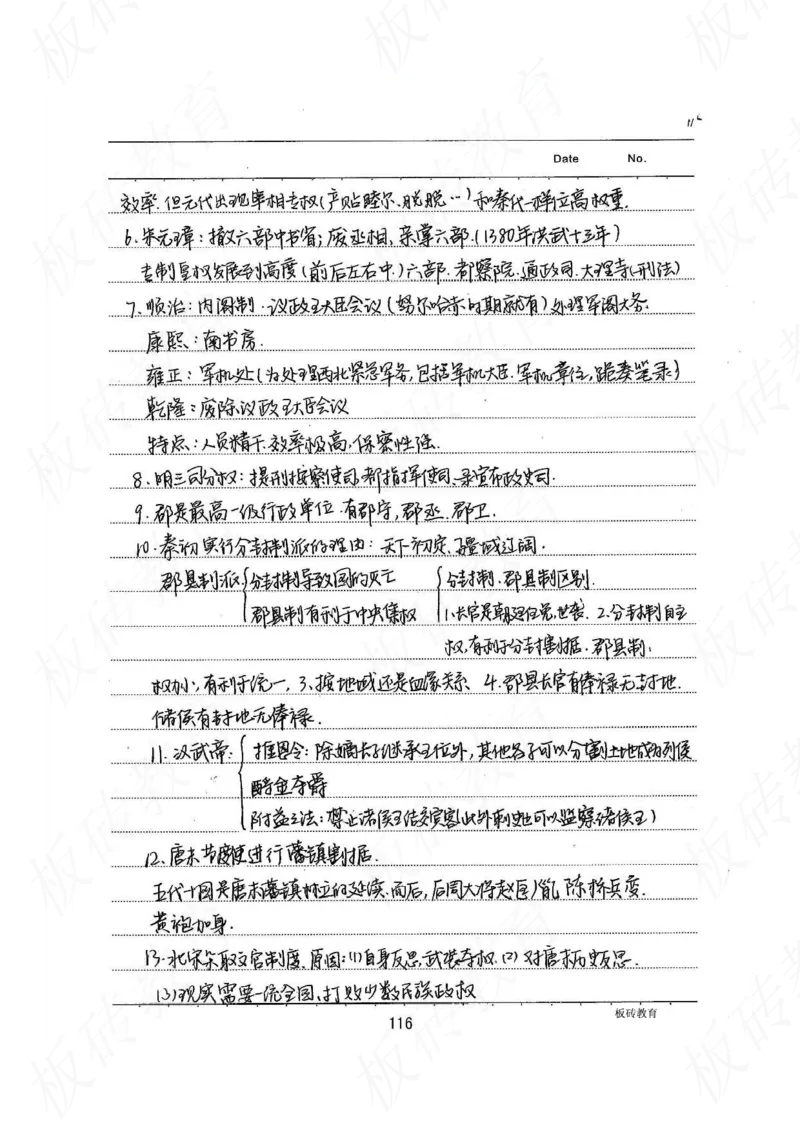 116
Date No.
效率.但元代出现宰相专权(严贴睦尔.脱脱…)和秦代一样位高权重.
6.朱元璋:撤六部中书省;废丞相,亲掌六部.(1380年洪武十三年)
专制皇权发展到高度(前后左右中.)六部.都察院.通政司.大理寺(刑法)
7.顺治:内阁制.议政王大臣会议(努尔哈赤时期就有)处理军国大务.
康熙:南书房.
雍正:军机处(为处理西北紧急军务,包括军机大臣.军机章位,跪奏笔录)
乾隆:废除议政王大臣会议
特点:人员精干.效率极高,保密性强.
8.明三司分权:提刑按察使司,都指挥使司、承宣布政史司.
9.郡是最高一级行政单位.有郡守,郡丞.郡卫.
10.秦初实行分封制派的理由:天下初定、疆域辽阔.
郡县制派{分封制导致国的灭亡 {分封制.郡县制区别.
郡县制有利于中央集权 1.长官是朝廷任免,世袭. 2.分封制自主
权,有利于分封割据.郡县制:
权小,有利于统一, 3、按地域还是血缘关系、4.郡县长官有俸禄无封地.
诸侯有封地无俸禄.
11.汉武帝:{推恩令:除嫡长子继承王位外,其他名子可以分割土地成为列侯
酎金夺爵
附益之法:禁止诸侯王结交宾客(此外刺史也可以监察诸侯王)
12.唐末节度使进行藩镇割据.
五代十国是唐末藩镇林立的延续.而后,后周大将赵匡胤 陈桥兵变.
黄袍加身.
13.北宋采取文官制度.原因:(1)自身反思.武装夺权.(2)对唐末历史反思.
(3)现实需要一统全国,打败少数民族政权
116
板砖教育